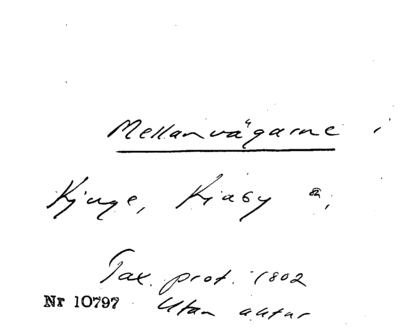 Mellanvägarne i
Kjuge, Kiaby
Tax. prot. 1802
Nr 10797 Utan aktnr